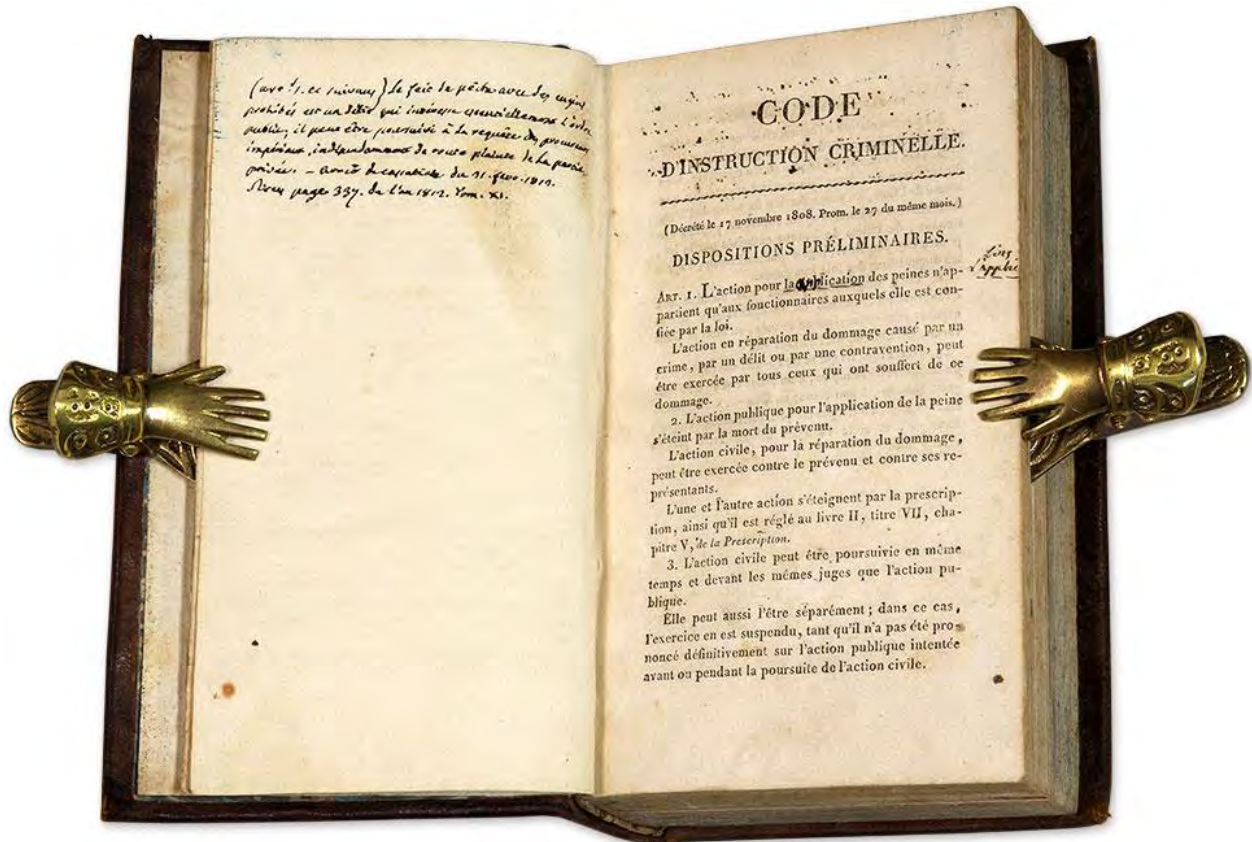 (art. 1. et suivans) Le fait de pêche avec des engins
prohibés est un délit qui intéresse essentiellement l'ordre
public, il peut être poursuivi à la requête du procureur
impérial, indépendamment de toute plainte de la partie
privée. – arrêt de cassation du 21. fevr. 1812.
Sirey page 337. de l'an 1812. Tom. XI.
CODE
D'INSTRUCTION CRIMINELLE.
(Décrété le 17 novembre 1808. Prom. le 27 du même mois.)
DISPOSITIONS PRÉLIMINAIRES.
ART. 1. L'action pour la application des peines n'ap-
partient qu'aux fonctionnaires auxquels elle est con-
fiée par la loi.
L'action en réparation du dommage causé par un
crime, par un délit ou par une contravention, peut
être exercée par tous ceux qui ont souffert de ce
dommage.
2. L'action publique pour l'application de la peine
s'éteint par la mort du prévenu.
L'action civile, pour la réparation du dommage,
peut être exercée contre le prévenu et contre ses re-
présentants.
L'une et l'autre action s'éteignent par la prescrip-
tion, ainsi qu'il est réglé au livre II, titre VII, cha-
pitre V, de la Prescription.
3. L'action civile peut être poursuivie en même
temps et devant les mêmes juges que l'action pu-
blique.
Elle peut aussi l'être séparément ; dans ce cas,
l'exercice en est suspendu, tant qu'il n'a pas été pro-
noncé définitivement sur l'action publique intentée
avant ou pendant la poursuite de l'action civile.